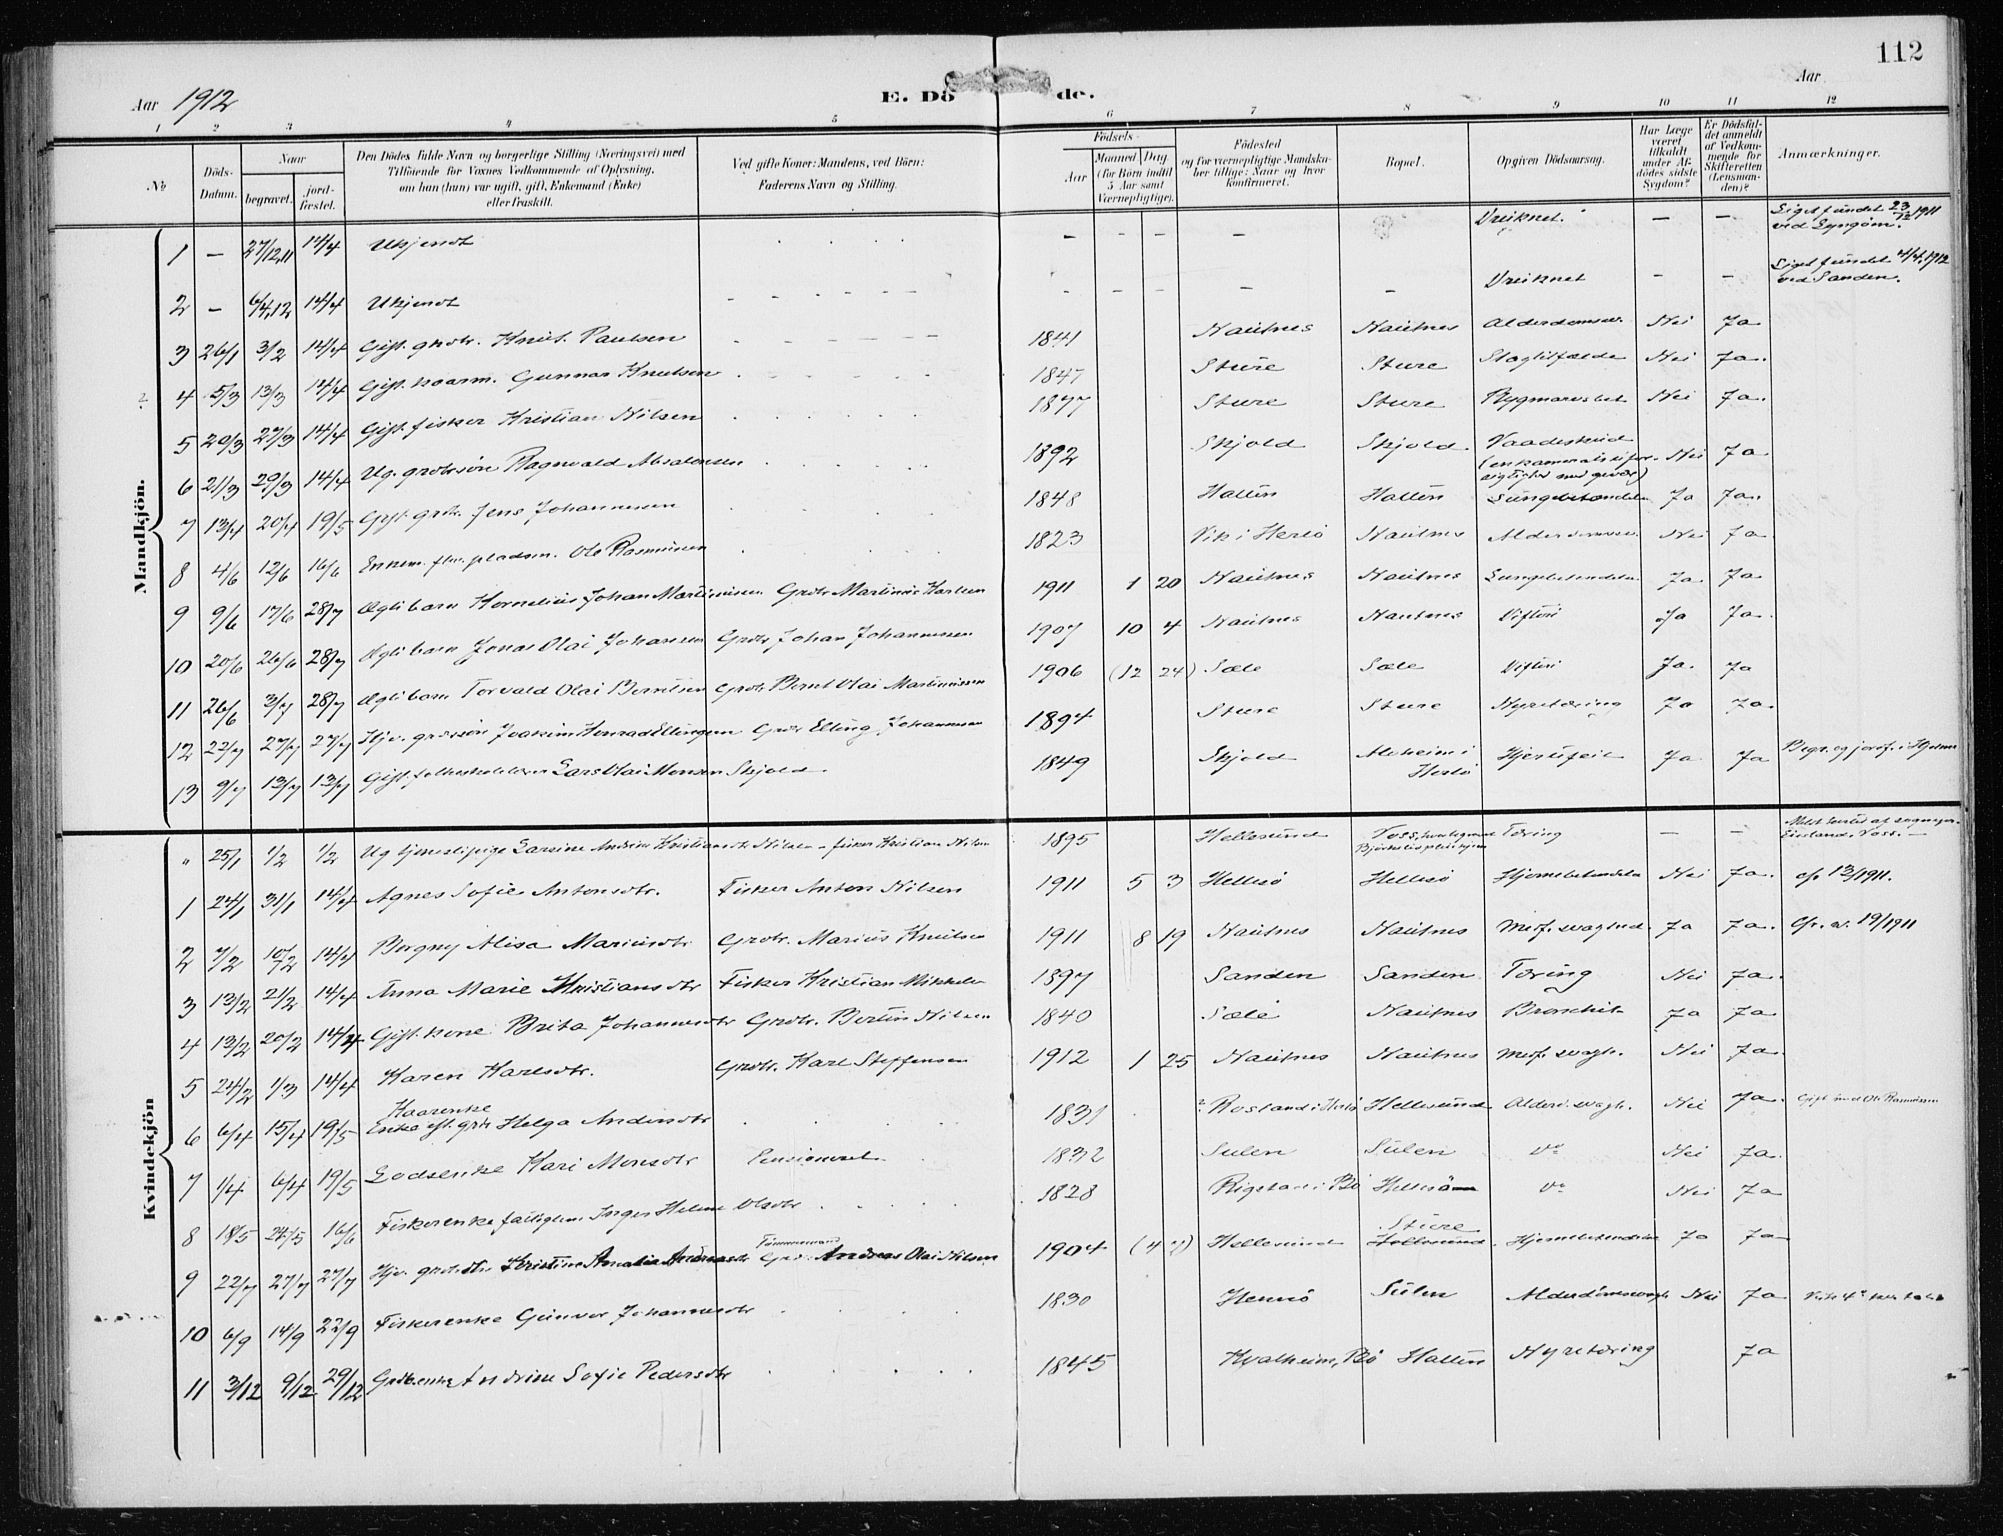 112
Aar 1912
E. Dö de.
Aar
1 2 3 4 5 6 7 8 9 10 11 12
No
Döds-Datum.
Naar
begravet.
jord-fæstet.
Den Dödes fulde Navn og borgerlige Stilling (Næringsvei) med
Tilföiende for Voxnes Vedkommende af Oplysning,
om han (hun) var ugift, gift, Enkemand (Enke)
eller fraskilt.
Ved gifte Koner: Mandens, ved Börn:
Faderens Navn og Stilling.
Födsels-
Aar
Maaned Dag
(for Börn indtil
5 Aar samt
Værnepligtige).
Födested
og for værnepligtige Mandska-
ber tillige: Naar og hvor
konfirmeret.
Bopæl.
Opgiven Dödsaarsag.
Har Læge
været
tilkaldt
under Af-
dödes sidste
Sygdom?
Er Dödsfal-
det anmeldt
af Vedkom-
mende for
Skifteretten
(Lensman-
den)?
Anmærkninger.
Mandkjön.
1 — 27/12.11 14/4 Ukjendt — — — Dreiknet. — — Liget fundet 23/12 1911
ved Lyngöen.
2 — 6/4.12 14/4 Ukjendt — — — — — Dreiknet — — Liget fundet 4/4.1912
ved Sanden.
3 26/1 3/2 14/4 Gift. grdbr. Knut Paulsen 1841 Nautnes Nautnes Alderdomssv. Nei Ja
4 5/3 13/3 14/4 Gift. kaarm. Gunnar Knutsen 1847 Sture Sture Slagtilfælde Nei Ja.
5 20/3 27/3 14/4 Gift fisker Kristian Nilsen 1877 Sture Sture Rygmarvsbet Nei Ja.
6 21/3 29/3 14/4 Ug. grdbrsön Ragnvald Absalonsen 1892 Skjold Skjold Vaadeskud
Nei Ja
7 13/4 20/4 19/5 Gift grdbr. Jens Johannesen 1848 Hatten Hatten Lungebetændelse Ja Ja.
8 4/6 12/6 16/6 Enkem. pladsm. Ole Rasmussen 1823 Vik i Herlö Nautnes Alderdomssv. Nei Ja
9 9/6 17/6 28/7 Ægte barn Kornelius Johan Martinussen Grdbr Martinus Karlsen 1911 1 20 Nautnes Nautnes Lungebetændelse Ja. Ja
10 20/6 26/6 28/7 Ægte barn Jonas Olai Johansen Grdbr Johan Johannessen 1907 10 4 Nautnes Nautnes Difteri Ja Ja.
11 26/6 3/7 28/7 Ægte barn Torvald Olai Berntsen Grdbr Bernt Olai Martinussen 1906 (12 24) Sæle Sæle Difteri Ja. Ja
12 22/7 27/7 27/7 Hjv. grdbrsön Joakim Konrad Ellingsen Grdbr Elling Johannesen 1894 Sture Sture Nyretæring Ja Ja.
13 9/7 13/7 13/7 Gift. Lars Olai Monsen Skjold. 1849 Skjold Herlö Hjertefeil Ja Ja Begr. og jordf. i Hjelme
Kvindekjön
" 25/1 1/2 1/2 Ug tjenestepige Larsine Andrine Kristiansdtr Nilsen — fisker Kristian Nilsen 1895 Hellesund Voss, Tæring — —
1 24/1 31/1 14/4 Agnes Sofie Antonsdtr. Fisker Anton Nilsen 1911 5 3 Hellesö Hellesö Hjernebetændelse Nei Ja. cfr 13/1911.
2 7/2 10/2 14/4 Borgny Alisa Mariusdtr Grdbr. Marius Knutsen 1911 8 19 Nautnes Nautnes Medf. svaghed Ja Ja. Cfr. nr. 19/1911
3 13/2 21/2 14/4 Anna Marie Kristiansdtr Fisker Kristian Mikkelsen 1897 Sanden Sanden Tæring Nei Ja.
4 13/2 20/2 14/4 Gift. kone Brita Johannesdtr Grdbr. Bertin Nilsen 1840 Sæle Nautnes Bronchit Ja Ja
5 24/2 1/3 14/4 Karen Karlsdtr. Grdbr. Karl Steffensen 1912 1 25 Nautnes Nautnes Medf. svagh. Nei Ja.
6 6/4 15/4 19/5 Kaarenke
Enke eft. grdbr Helga Andersdtr 1831 Rosland i Herlö Hellesund Alderd. svagh. Nei Ja. Gift med Ole Rasmussen
7 1/4 6/4 19/5 Lodsenke Kari Monsdtr Pensioneret 1832 Sulen Sulen Do Nei Ja.
8 18/5 24/5 16/6 Fiskerenke fattiglem Inger Helene Olsdtr 1828 Rigstad i Bö Hellesöen Do Nei Ja
9 22/7 27/7 27/7 Hjv. grdbrdtr. Kristine Amalie Andreasdtr Tömmermand
Grdbr. Andreas Olai Nilsen 1904 (4 7) Hellesund Sture
Hellesund. Hjernebetændelse Ja Ja
10 6/9 14/9 22/9 Fiskerenke Gunvor Johannesdtr 1830 Hernö Sulen Alderdomssvagh Nei Ja
11 3/12 9/12 29/12 Grdbr.enke Andrine Sofie Pedersdtr 1845 Kvalheim, Bö Hatten Nyretæring Ja